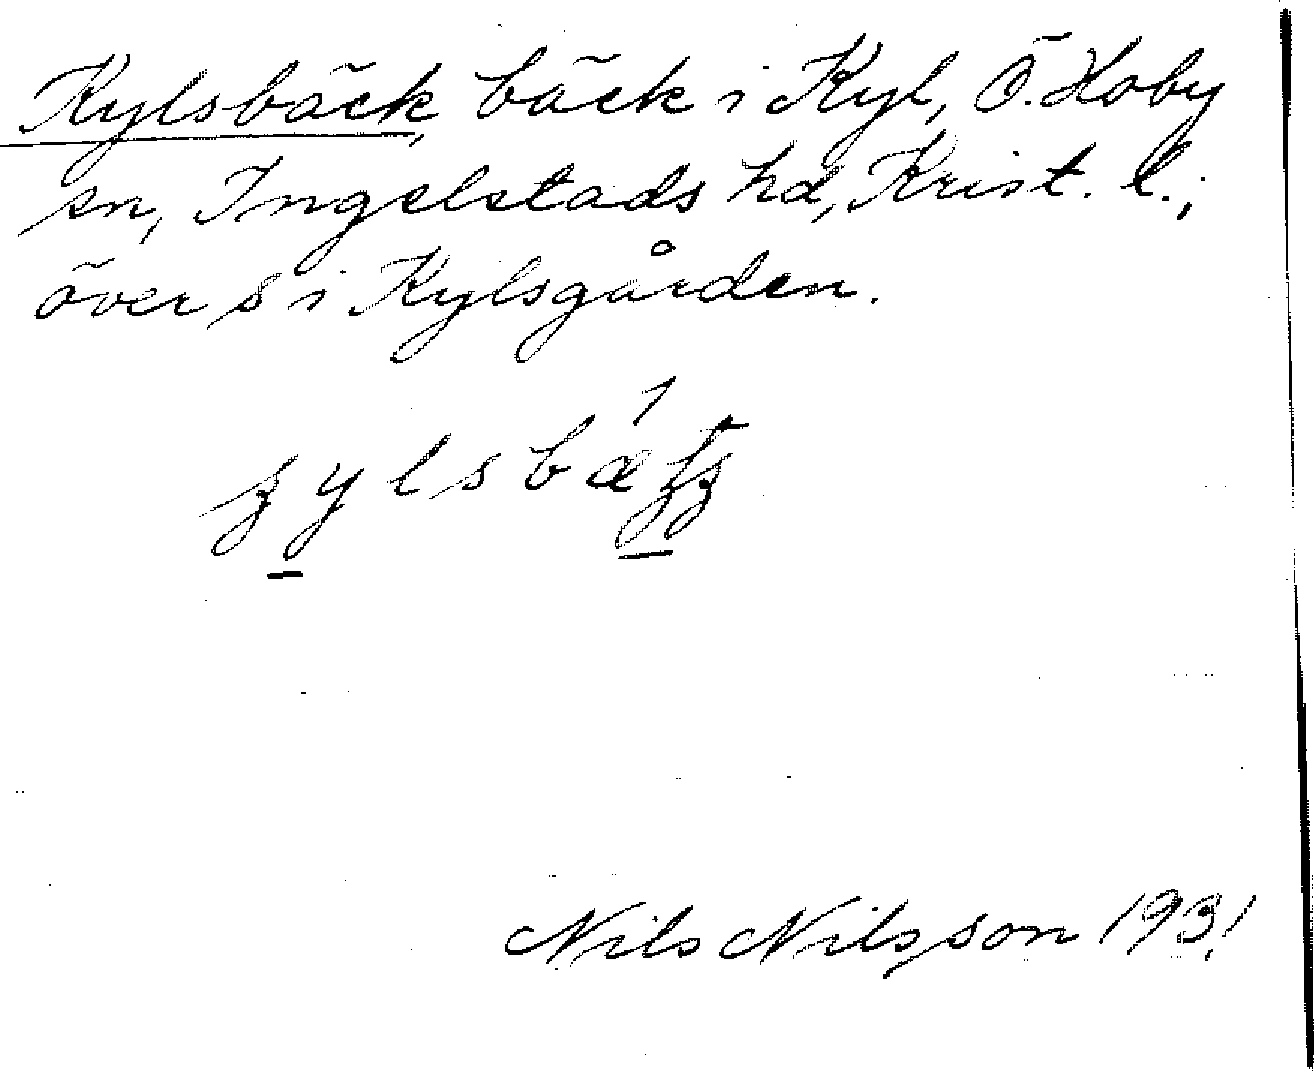 Kylsbäck, bäck i Kyl, Ö. Hoby
sn, Ingelstads hd, Krist. l.,
över s i Kylsgården.
Nils Nilsson 1931